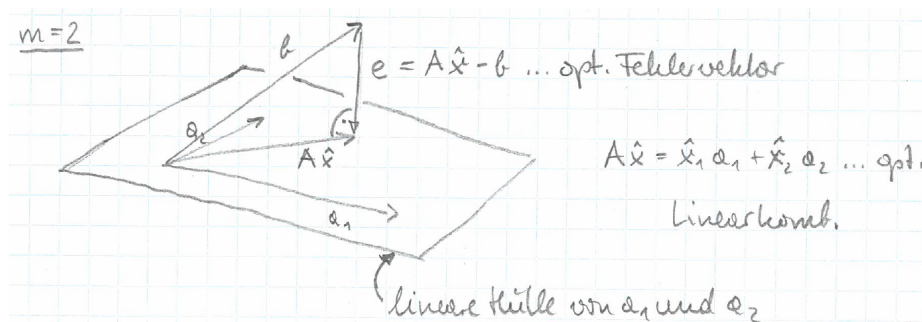 m=2
b
e = Ax̂ - b ... opt. Fehlervektor
a₂
Ax̂
Ax̂ = x̂₁ a₁ + x̂₂ a₂ ... opt.
Linearkomb.
a₁
lineare Hülle von a₁ und a₂